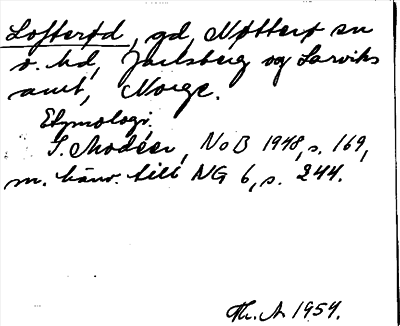 Lofterød, gd, Nøtterø sn
o. hd, Jarlsberg og Larviks
amt, Norge.
Etymologi.
I. Modéer, NoB 1948, s. 169,
m. hänv. till NG 6, s. 244.
Th. A. 1954.